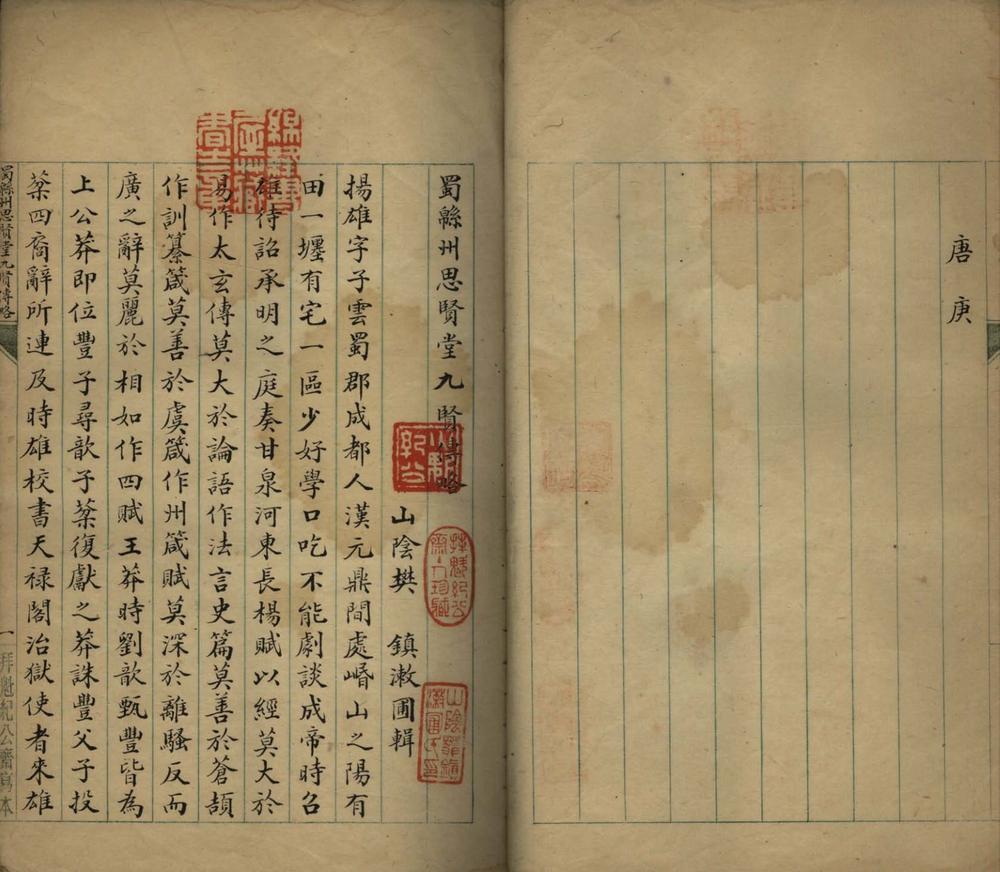 唐庚
蜀緜州思賢堂九賢傳略
山陰樊 鎮漱圃輯
揚雄字子雲蜀郡成都人漢元鼎間處崏山之陽有
田一壥有宅一區少好學口吃不能劇談成帝時召
雄待詔承明之庭奏甘泉河東長楊賦以經莫大於
易作太玄傳莫大於論語作法言史篇莫善於蒼頡
作訓纂箴莫善於虞箴作州箴賦莫深於離騷反而
廣之辭莫麗於相如作四賦王莽時劉歆甄豐皆為
上公莽即位豐子尋歆子棻復獻之莽誅豐父子投
棻四裔辭所連及時雄校書天禄閣治獄使者來雄
蜀緜州思賢堂九賢傳略
一
拜魁紀公齋寫本
山陰樊鎮
漱圃氏印